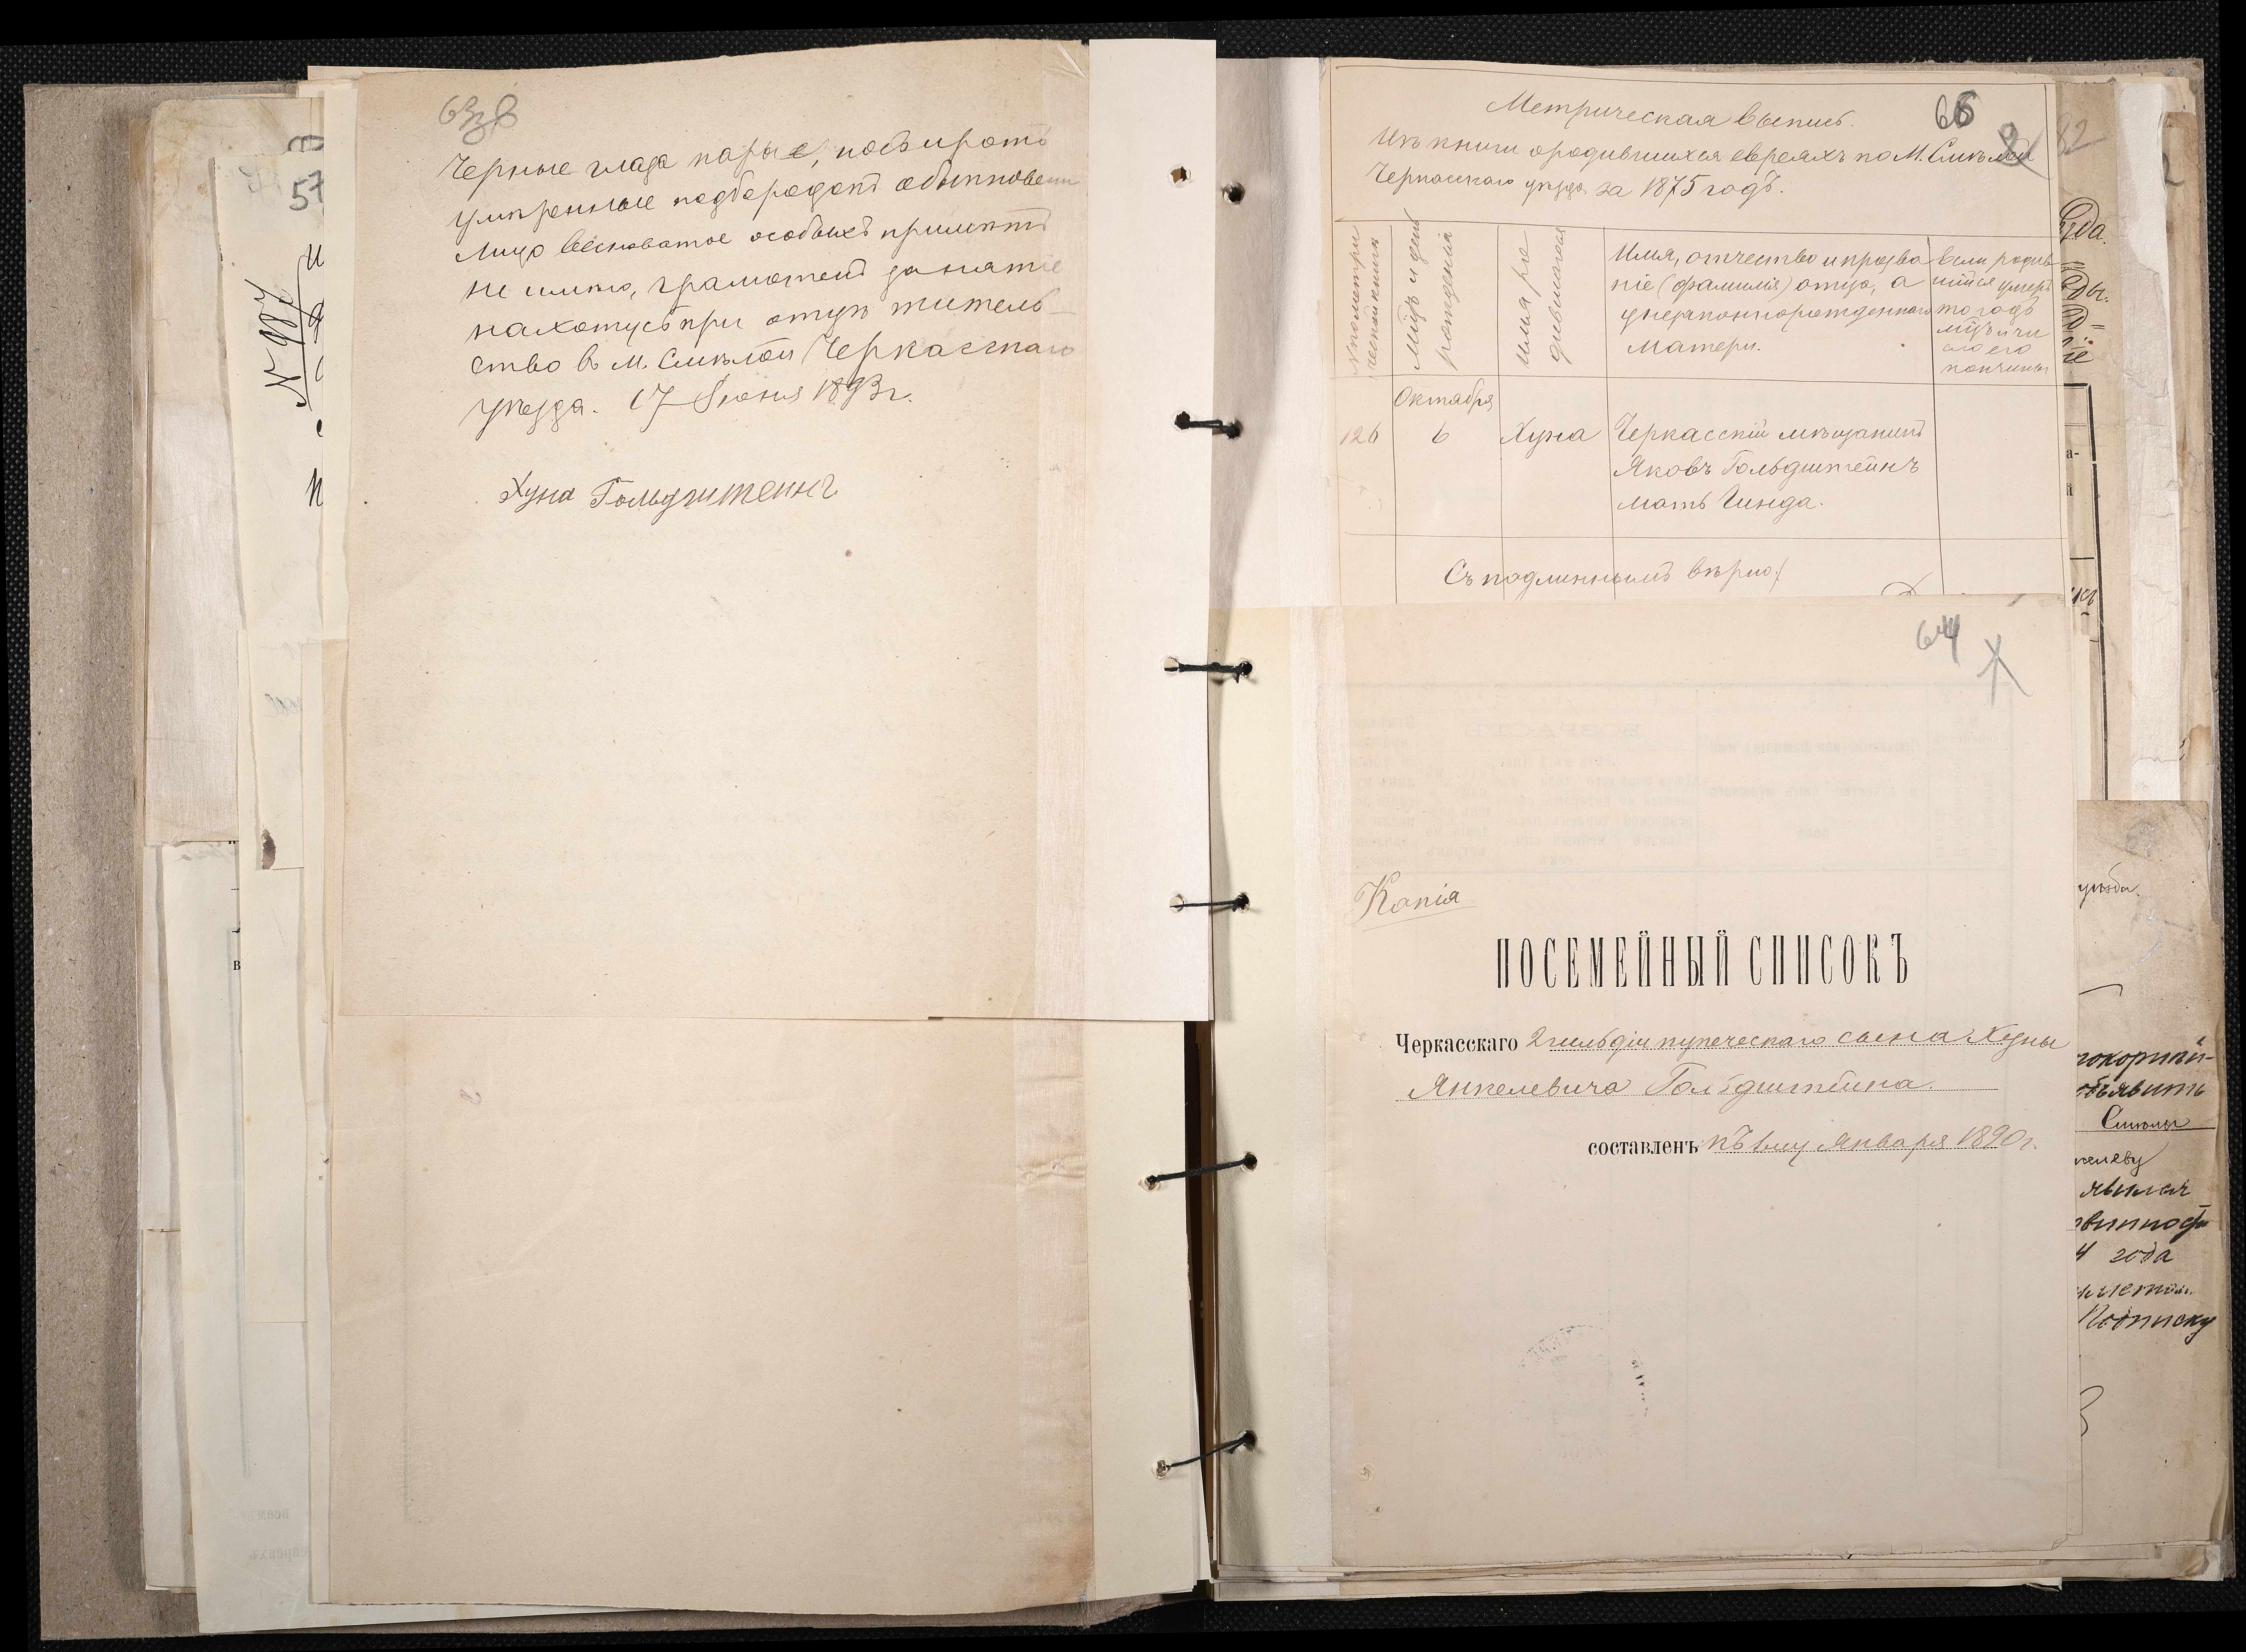 63 зв
Черные глаза карые, нос и ротъ
умѣренные подбородокъ обыкновен
лицо весноватое особыхъ примѣтъ
не имѣю, грамотенъ занятіе
нахожусь при отцѣ житель-
ство в м. Смѣлой Черкасскаго
уѣзда. 17 Июня 1893 г.
Хуна Гольдштейнъ
57
N 987
66
82
Метрическая выпись.
Изъ книги о родившихся евреяхъ по М. Смѣлой
Черкасскаго уѣзда за 1875 годъ.
N по метри
ческой книгѣ
Мѣсц и день
рожденія
Имя ро
дившагося
Имя, отчество и прозва
ніе (фамилія) отца, а
у незаконнорожденнаго
матери.
Если родив
шійся умеръ
то годъ
мѣсц и чи
сло его
кончины
Октября
126 6 Хуна Черкасскій мѣщанинъ
Яковъ Гольдштейнъ
мать Гинда.
Съ подлиннымъ вѣрно:
64
Копія
ПОСЕМЕЙНЫЙ СПИСОКЪ
Черкасскаго 2 гильдіи купеческаго сына Хуны
Янкелевича Гольдштейна.
составленъ къ 1му Января 1890 г.
объявить
Смѣлы
явился
4 года
Подписку